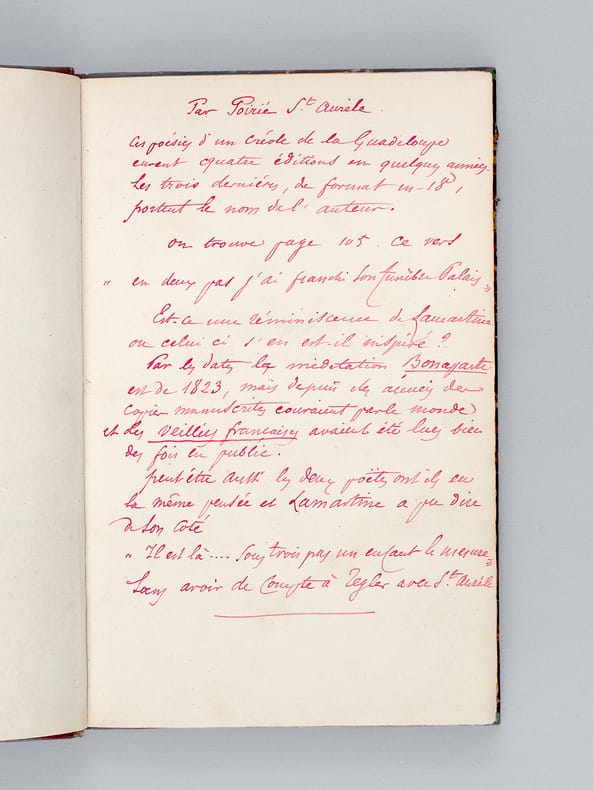 Par Poirié St Aurèle.
Ces poésies d'un créole de la Guadeloupe
eurent quatre éditions en quelques années.
Les trois dernières, de format in-18°,
portent le nom de l'auteur.
on trouve page 105 ce vers
" en deux pas j'ai franchi son funèbre Palais "
Est-ce une réminiscence de Lamartine
ou celui ci s'en est-il inspiré ?
Par les dates la méditation Bonaparte
est de 1823, mais depuis des années des
copies manuscrites couraient par le monde
et les veillées françaises avaient été lues bien
des fois en public.
peut être aussi les deux poëtes ont ils eu
la même pensée et Lamartine a pu dire
de son coté
" Il est là.... Sous trois pas un enfant le mesure "
Sans avoir de Compte à régler avec St Aurèle